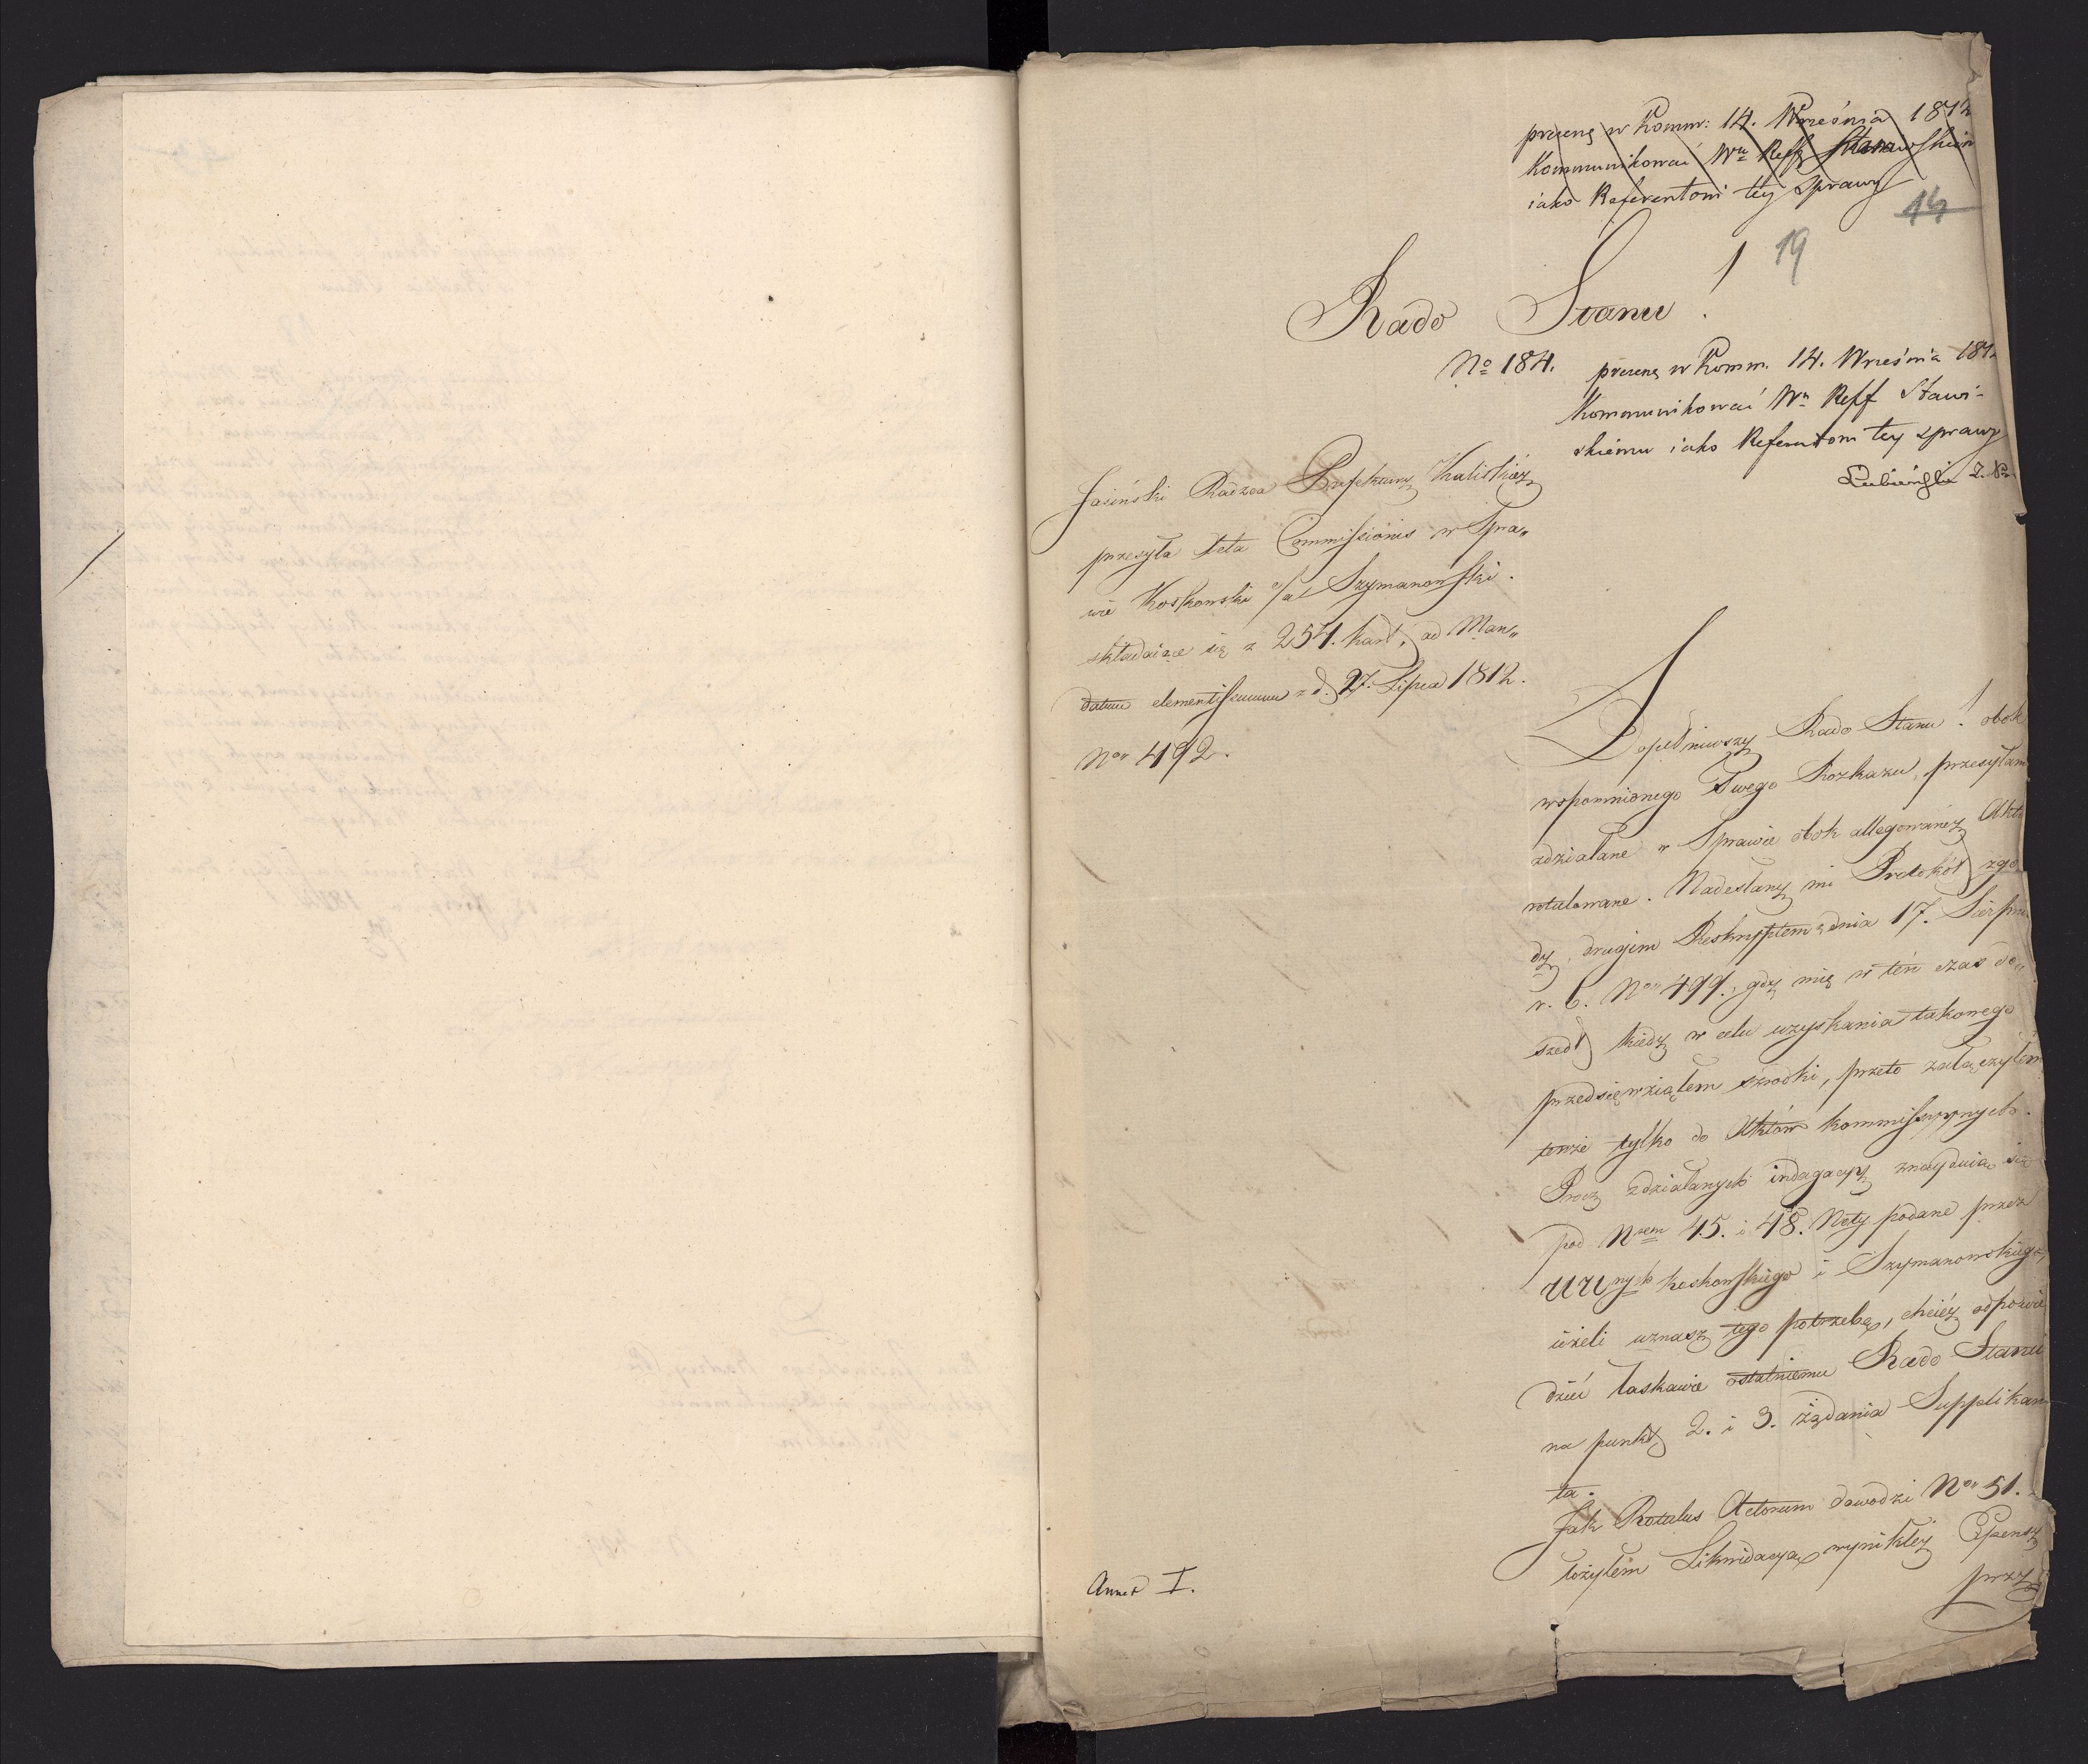 prezenę w Komm: 14. Września 1812
Kommunikować Wu Reff Stawiskiem
iako Referentowi tey Sprawy
14
19
Rado Stanu!
No 184.
prezenę w Komm. 14. Września 181
Kommunikować Wu Reff Stawi-
skiemu iako Referentowi tey sprawy
Lubieński
Jasiński Radzca Prefektury Kaliskiéy
przesyła Acta Commissionis w Spra„
wie Koskowski c/a Szymanowski.
składaiące się z 254. kart, ad Man„
datum clementissimum z d. 27. Lipca 1812.
Nor 492.
Dopełniwszy Rado Stanu! obok
wspomnionego Twego Rozkazu, przesyłam
zdziałane w Sprawie obok allegowanéy Akta
rotulowane. Nadesłany mi Protokół zgo
dy, drugim Reskryptem z dnia 17. Sierpnia
r. b. Nor 499. gdy mię w tén czas do„
szedł kiedy w celu uzyskania takowego
przedsięwziąłem szrodki, przeto załączyłem
tenże tylko do Aktów kommissyynych.
Procz zdziałanych indagacyy znayduią się
pod Nrem 45. i 48. Noty podane przez
UUnych Koskowskiego i Szymanowskiego,
ieżeli uznasz tego potrzebę, chciéy odpowie
dzieć łaskawie ostatniemu Rado Stanu
na punkt 2. i 3. żądania Supplikan
ta.
Jak Rotulus Actorum dowodzi Nor 51.
łożyłem Likwidacyą wynikłéy Expensy
przy
Annex I.